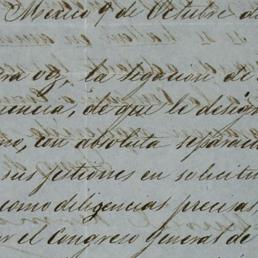 Mexico 9 de Octubre de
ra vez, la legacion de
cencia, de que le desig
no, con absoluta separaci
sus gestiones en solicitu
como diligencias precisas,
or el Congreso General de